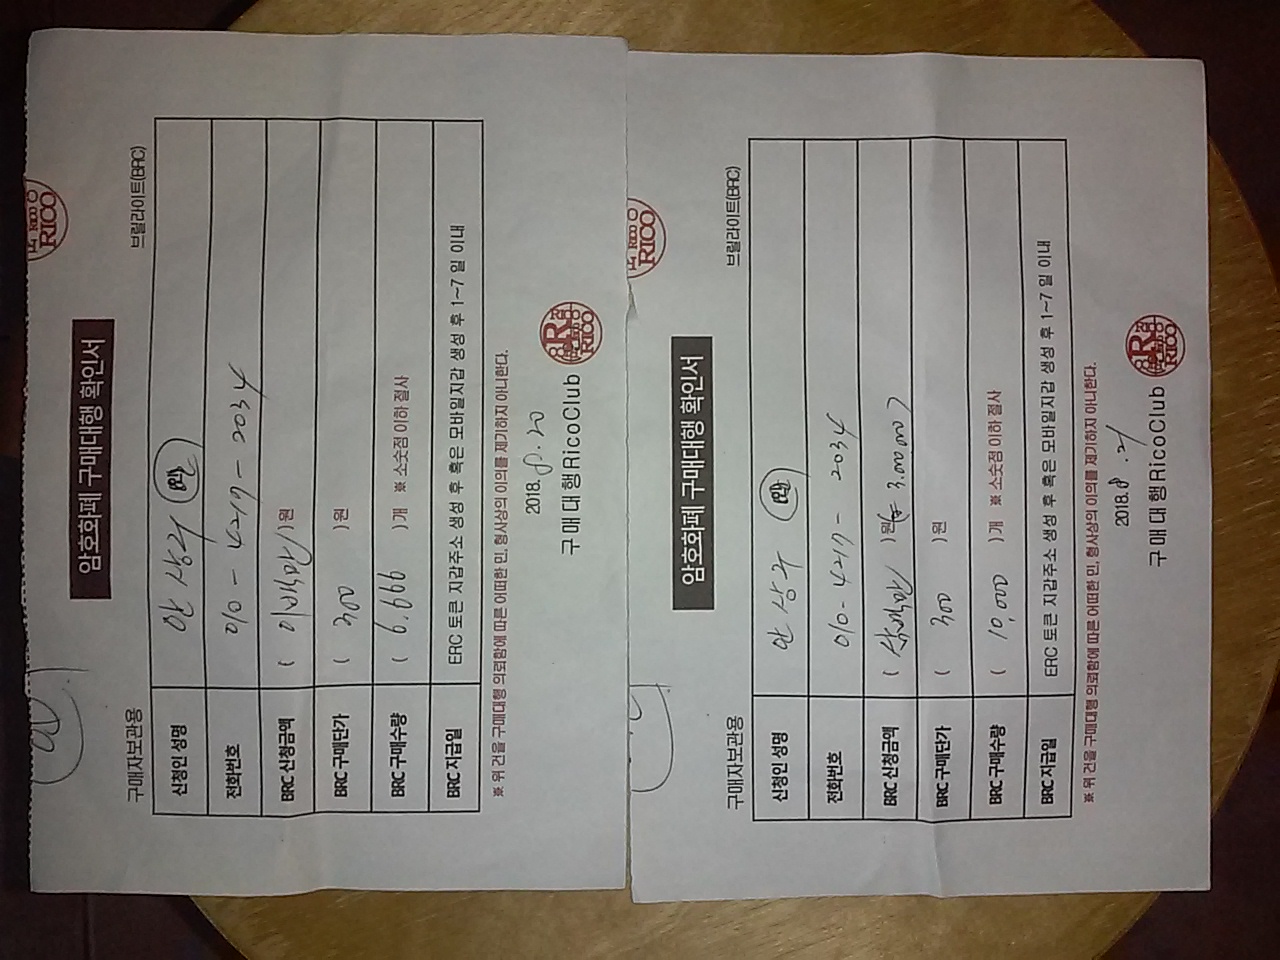 RICO
암호화폐 구매대행 확인서
구매자보관용 브릴라이트(BRC)
신청인 성명 안상수
전화번호 010-4217-2034
BRC 신청금액 ( 이백만 )원
BRC 구매단가 ( 300 )원
BRC 구매수량 ( 6,666 )개 ※ 소숫점 이하 절사
BRC 지급일 ERC 토큰 지갑주소 생성 후 혹은 모바일지갑 생성 후 1~7 일 이내
※ 위 건을 구매대행 의뢰함에 따른 어떠한 민, 형사상의 이의를 제기하지 아니한다.
2018. 8. 20
구 매 대 행 RicoClub
RICO
RICO
암호화폐 구매대행 확인서
구매자보관용 브릴라이트(BRC)
신청인 성명 안상수
전화번호 010-4217-2034
BRC 신청금액 ( 삼백만 )원 3.000.000
BRC 구매단가 ( 300 )원
BRC 구매수량 ( 10,000 )개 ※ 소숫점 이하 절사
BRC 지급일 ERC 토큰 지갑주소 생성 후 혹은 모바일지갑 생성 후 1~7 일 이내
※ 위 건을 구매대행 의뢰함에 따른 어떠한 민, 형사상의 이의를 제기하지 아니한다.
2018. 8. 21
구 매 대 행 RicoClub
RICO